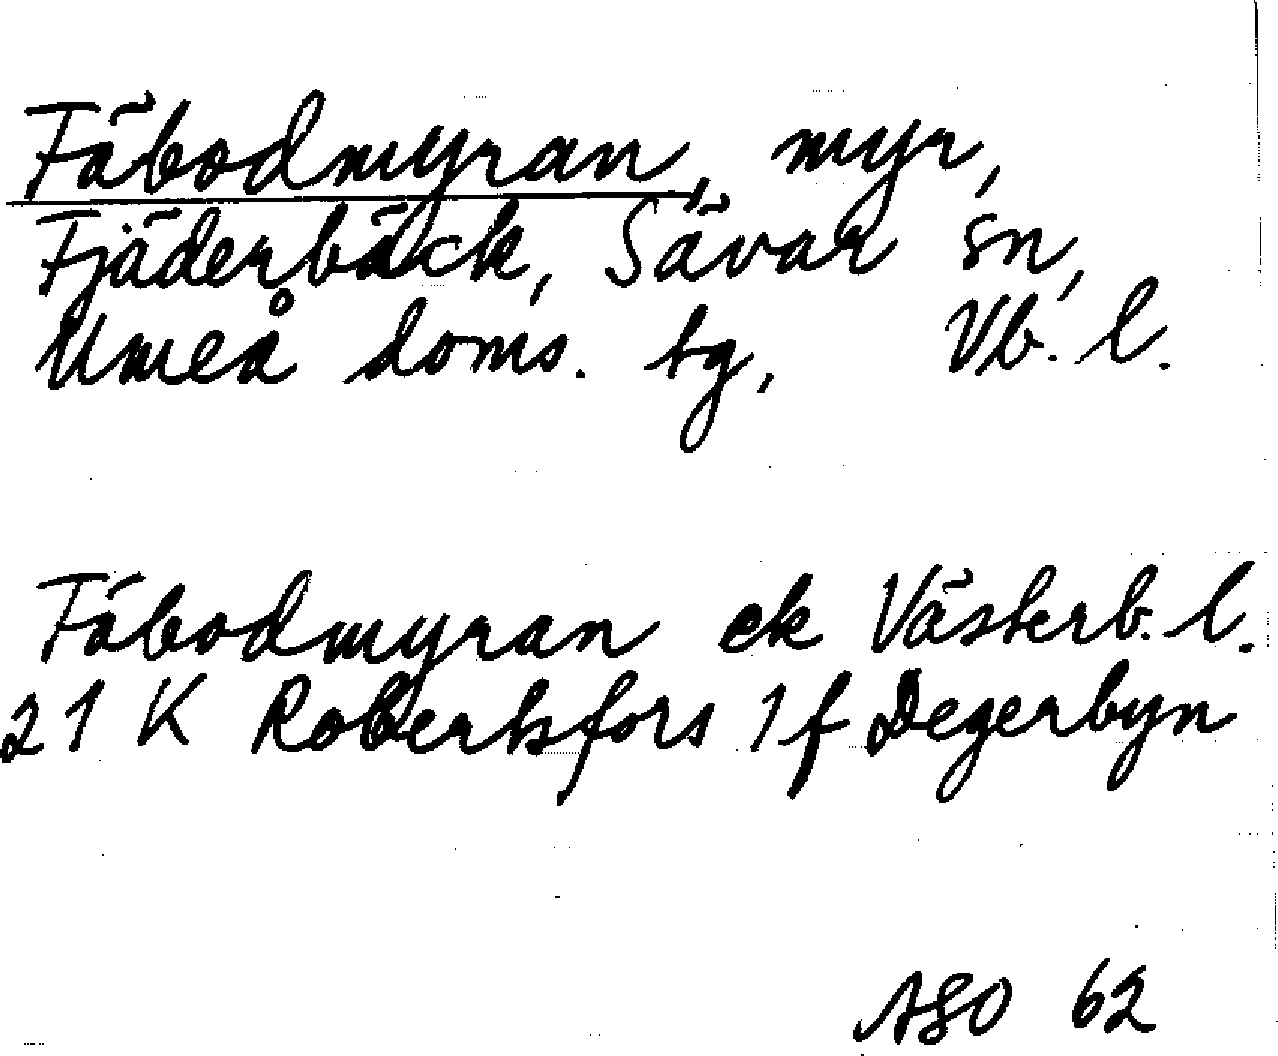 Fäbodmyran, myr,
Fjäderbäck, Sävar sn,
Umeå doms. tg, Vb. l.
Fäbodmyran ek Västerb. l.
21 K Robertsfors 1 f Degerbyn
ASO 62